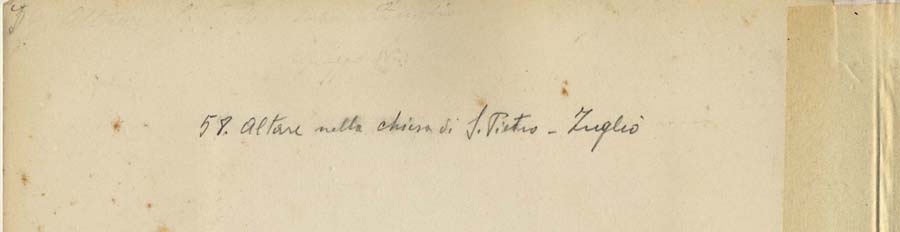 58. Altare nella chiesa di S. Pietro - Zuglio